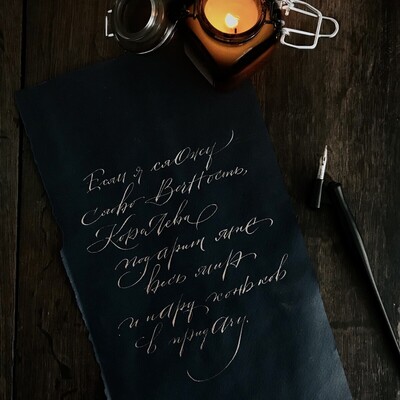 Если я сложу
слово Вечность,
Королева
подарит мне
весь мир
и пару коньков
в придачу.